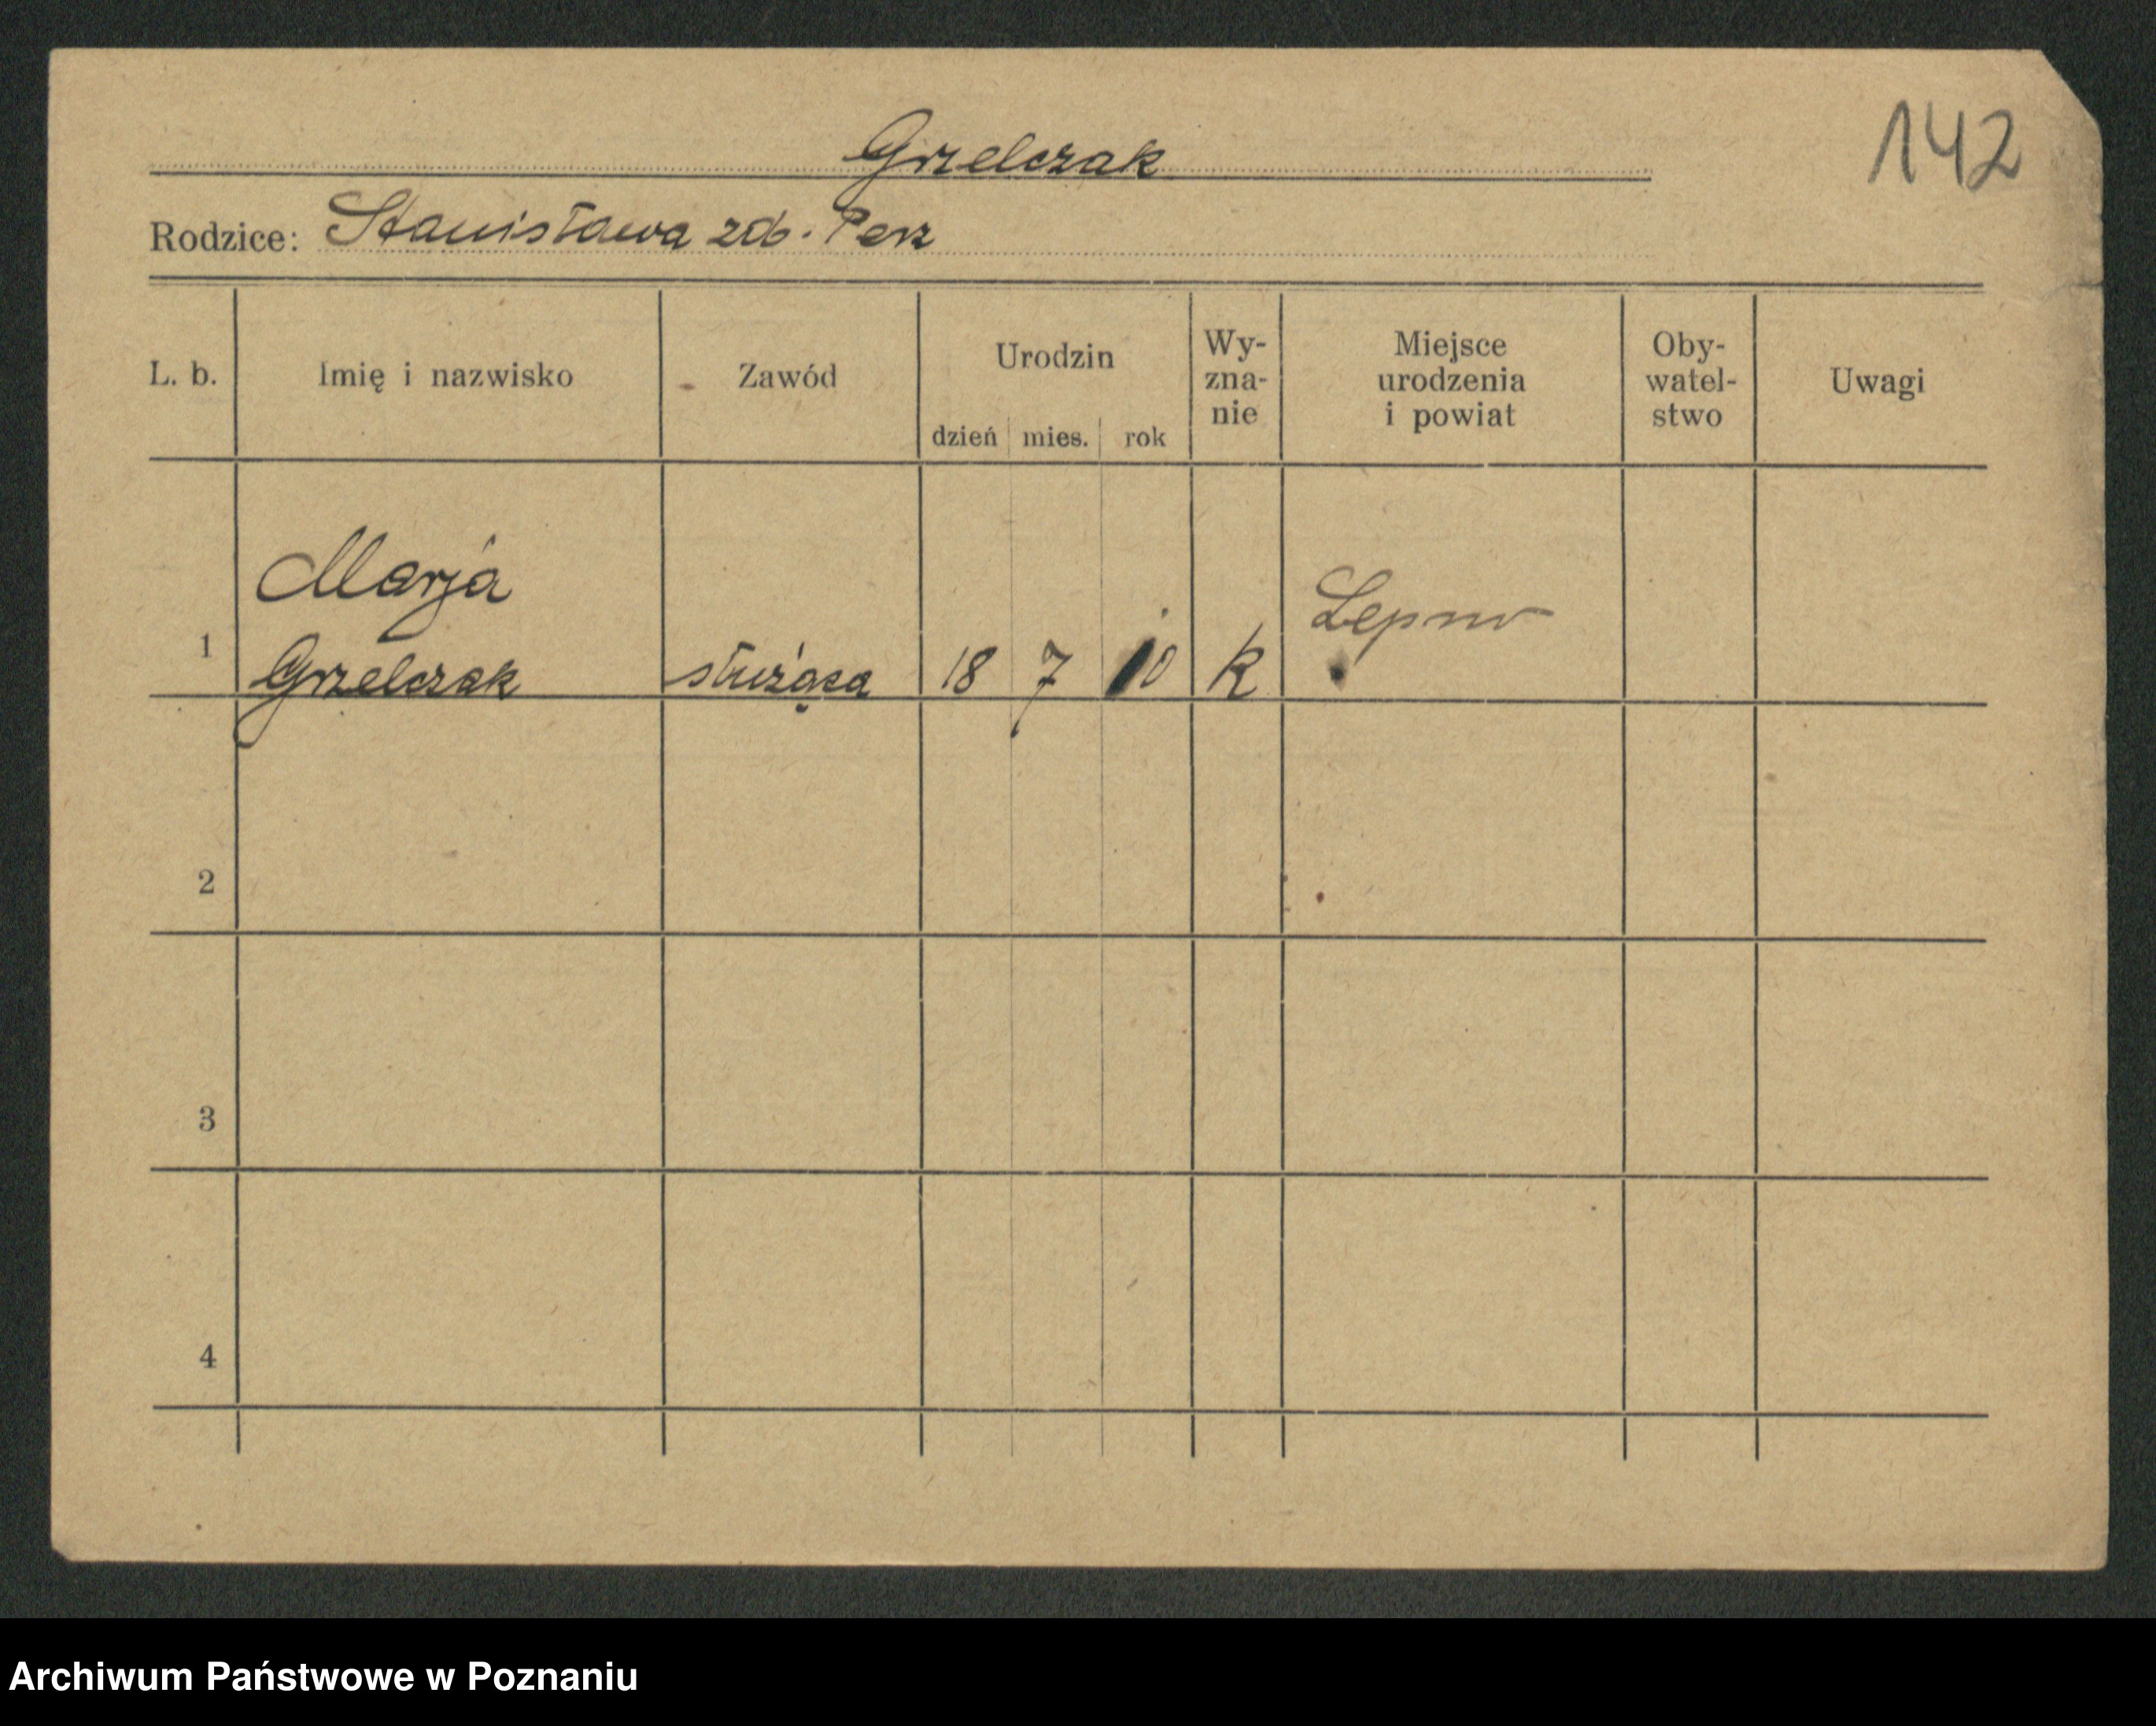 142
Grzelczak
Rodzice: Stanisława zd. Perz
L. b. Imię i nazwisko Zawód Urodzin dzień mies. rok Wy-zna-nie Miejsce urodzenia i powiat Oby-watel-stwo Uwagi
Marja
1 Grzelczak służąca 18 7 10 k
2
3
4
Archiwum Państwowe w Poznaniu